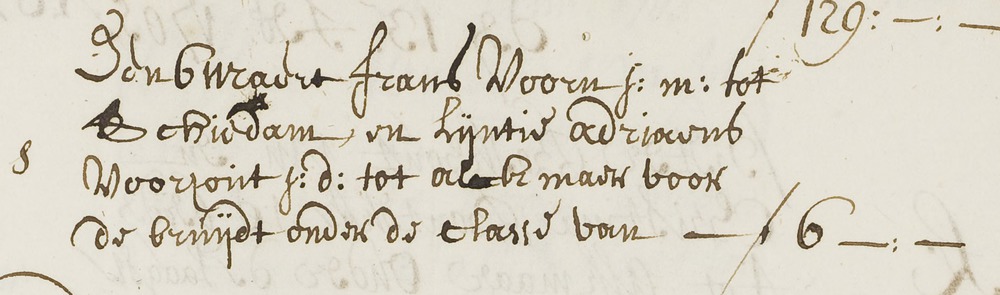 129: —: —
IJsbwraert frans Voorn j: m: tot
Schiedam, en lijntie adriaens
§ Voorzont j: d: tot alckmaer voor
de bruijdt onder de Classe van — / 6 —: —